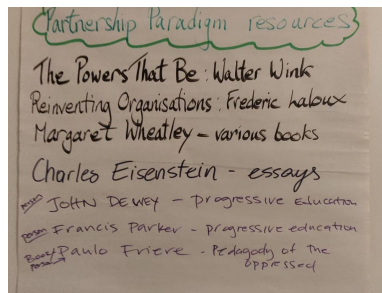 Partnership Paradigm resources
The Powers That Be : Walter Wink
Reinventing Organisations : Frederic haloux
Margaret Wheatley – various books
Charles Eisenstein - essays
person JOHN DEWEY – progressive education
person Francis Parker – progressive education
Book/person Paulo Friere – Pedagody of the
oppressed